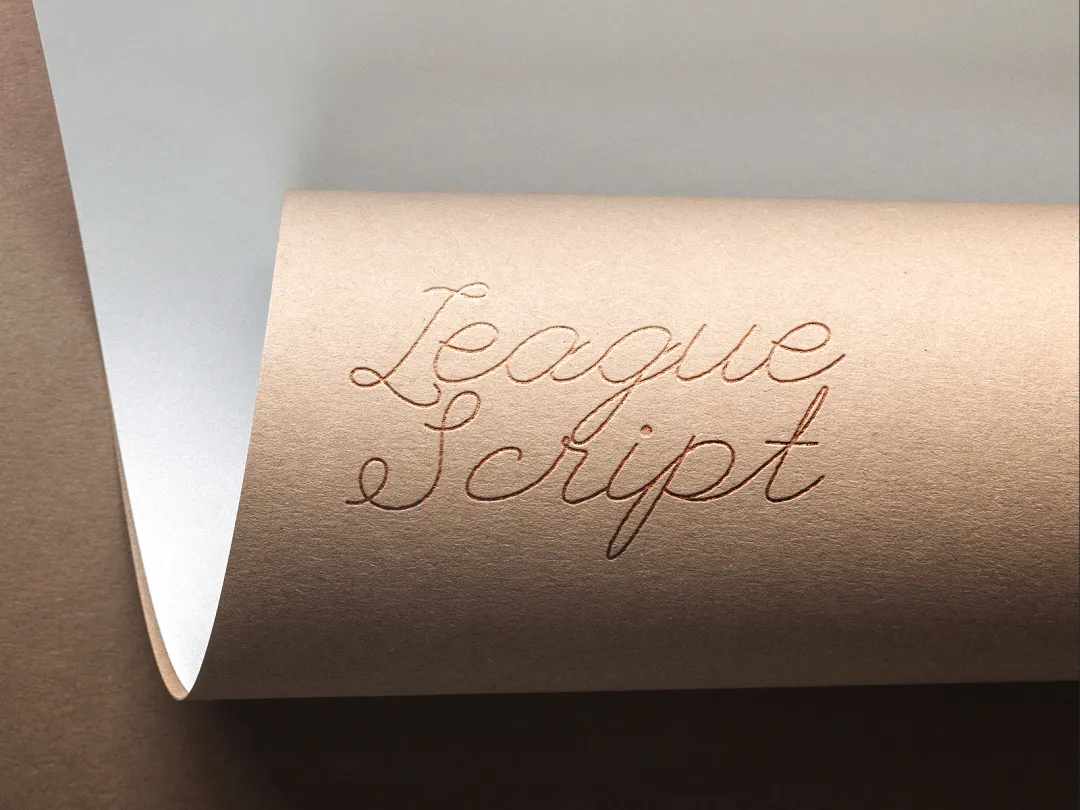 League
Script